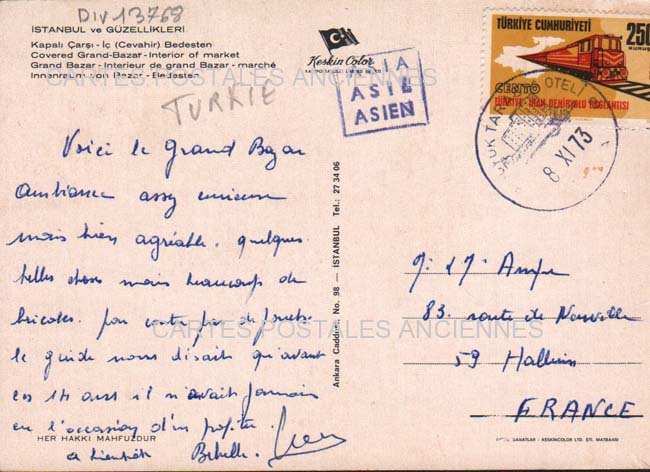 Div 13768
İSTANBUL ve GÜZELLİKLERİ
Kapalı Çarşı - İç (Cevahir) Bedesten
Covered Grand-Bazar - Interior of market
Grand Bazar - Interieur de grand Bazar - marché
Innenraum von Bazar - Bedesten
TURKIE
Keskin Color
ASIA
ASIE
ASIEN
TÜRKİYE CUMHURİYETİ
250
KURUŞ
CENTO
TÜRKİYE - İRAN DEMİRYOLU BAĞLANTISI
OTELİ
8 XI 73
Voici le Grand Bazar
Ambiance assez curieuse
mais bien agréable. quelques
belles choses mais beaucoup de
bricoles. par contre pas de
le guide nous disait qu'avant
ces 14 ans il n'avait jamais
eu l'occasion d'en profiter.
a bientôt
Ankara Caddesi, No. 98 — İSTANBUL Tel.: 27 34 06
CARTES POSTALES ANCIENNES
CARTES POSTALES ANCIENNES
83. route de
59 Halluin
FRANCE
HER HAKKI MAHFUZDUR
SANATLAR - KESKİNCOLOR LTD. ŞTİ. MATBAASI